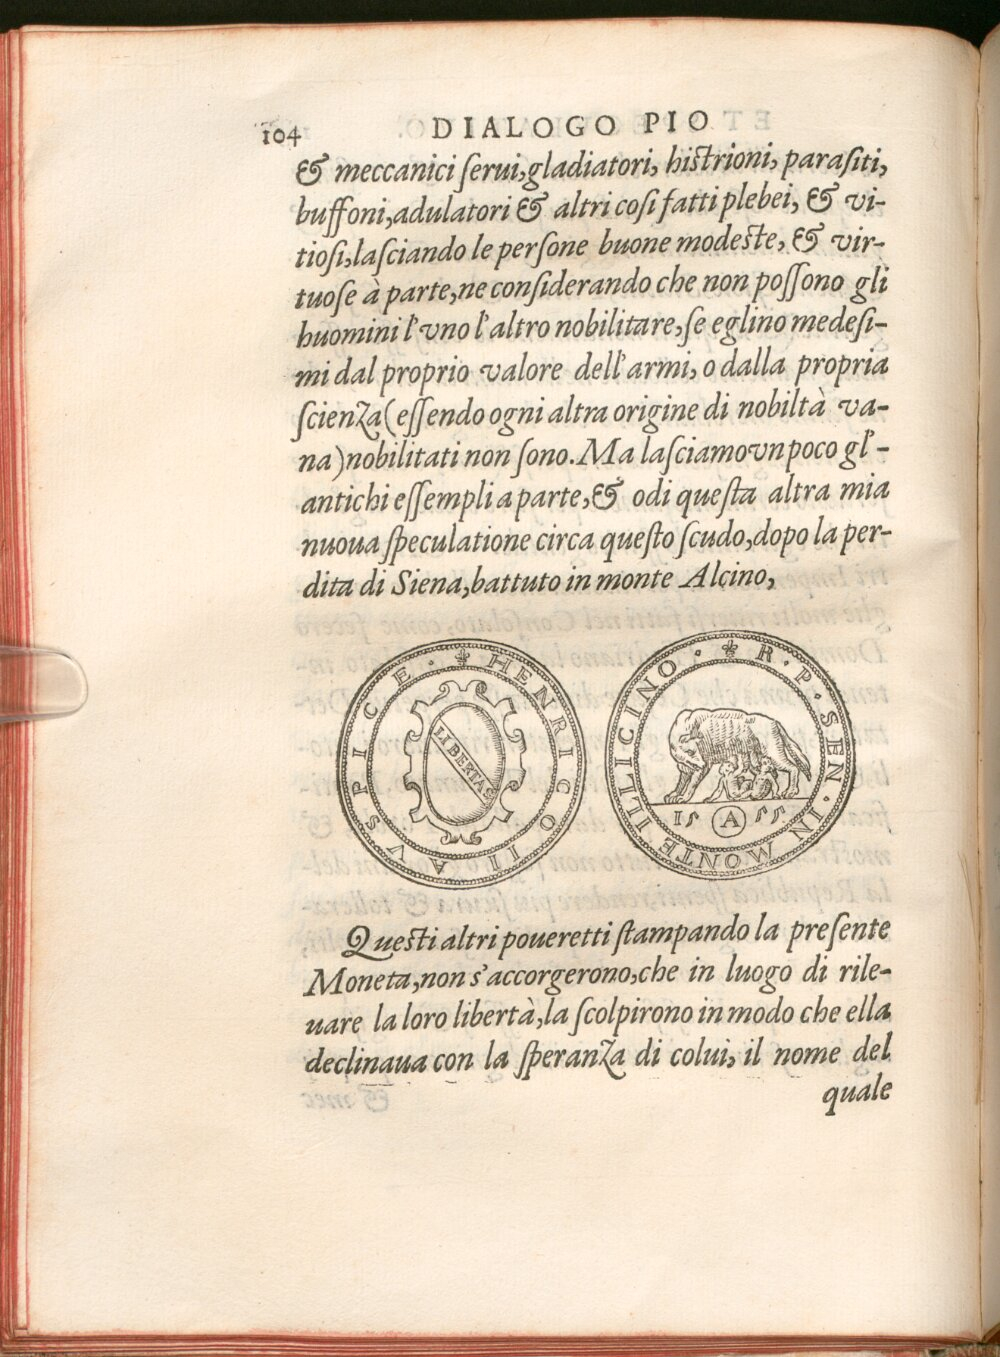 104 DIALOGO PIO
& meccanici ſerui, gladiatori, hiſtrioni, paraſiti,
buffoni, adulatori & altri coſi fatti plebei, & vi-
tioſi, laſciando le perſone buone modeſte, & vir-
tuoſe à parte, ne conſiderando che non poſſono gli
huomini l'vno l'altro nobilitare, ſe eglino medeſi-
mi dal proprio valore dell'armi, o dalla propria
ſcienza (eſſendo ogni altra origine di nobiltà va-
na) nobilitati non ſono. Ma laſciamo vn poco gl'-
antichi eſſempli a parte, & odi queſta altra mia
nuoua ſpeculatione circa queſto ſcudo, dopo la per-
dita di Siena, battuto in monte Alcino,
HENRICO II AVSPICE ·
LIBERTAS
R · P · SEN · IN MONTE ILLICINO ·
15 A 55
Queſti altri poueretti ſtampando la preſente
Moneta, non s'accorgerono, che in luogo di rile-
uare la loro libertà, la ſcolpirono in modo che ella
declinaua con la ſperanza di colui, il nome del
quale